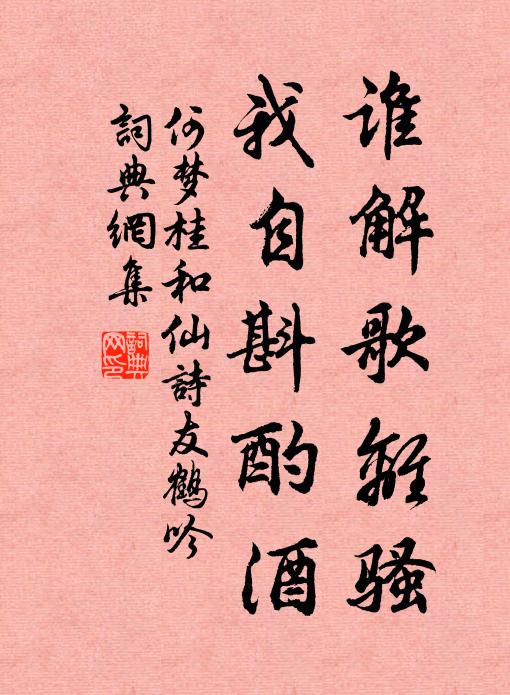 谁解歌離骚
我自斟酌酒
何梦桂和仙詩友鶴吟
詞典網集
詞典网印